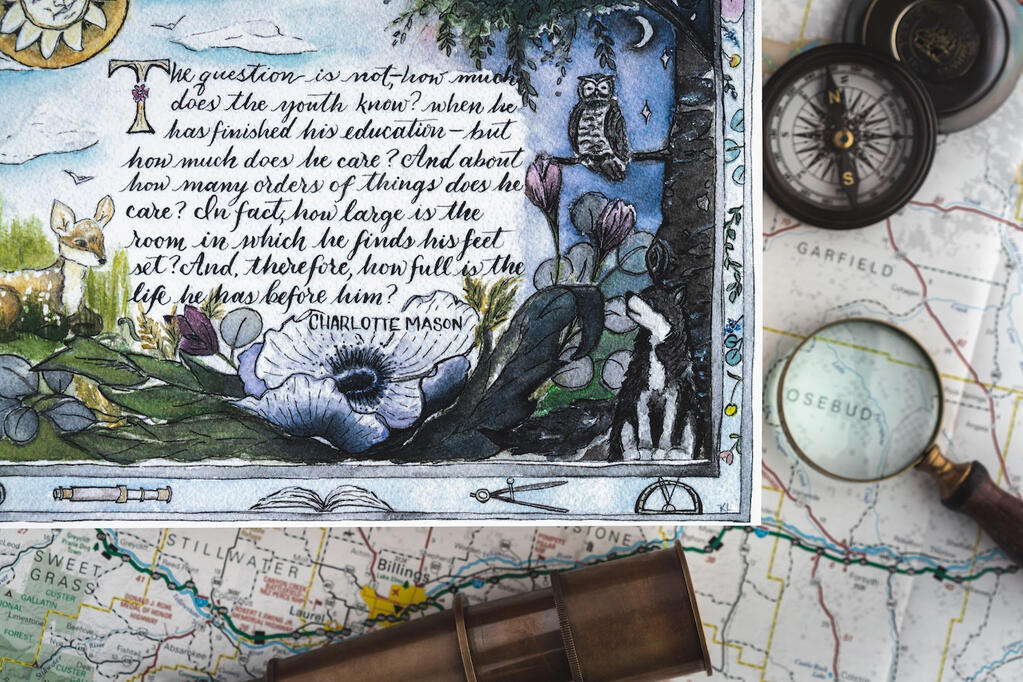 The question is not, how much
does the youth know? when he
has finished his education – but
how much does he care? And about
how many orders of things does he
care? In fact, how large is the
room in which he finds his feet
set? And, therefore, how full is the
life he has before him?
CHARLOTTE MASON
KL
N
S
GARFIELD
OSEBUD
STILLWATER
STONE
SWEET
GRASS
Billings
Laurel
Absarokee
Forsyth
Colstrip
CUSTER
GALLATIN
FOREST
CUSTER